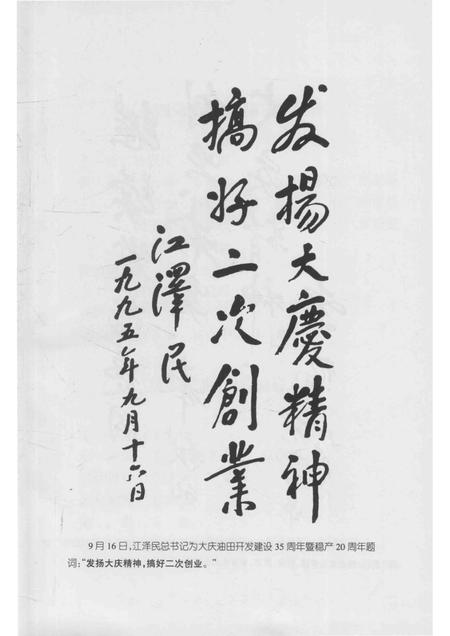 发揚大慶精神
搞好二次創業
江澤民
一九九五年九月十六日
9月16日，江泽民总书记为大庆油田开发建设35周年暨稳产20周年题
词：“发扬大庆精神，搞好二次创业。”